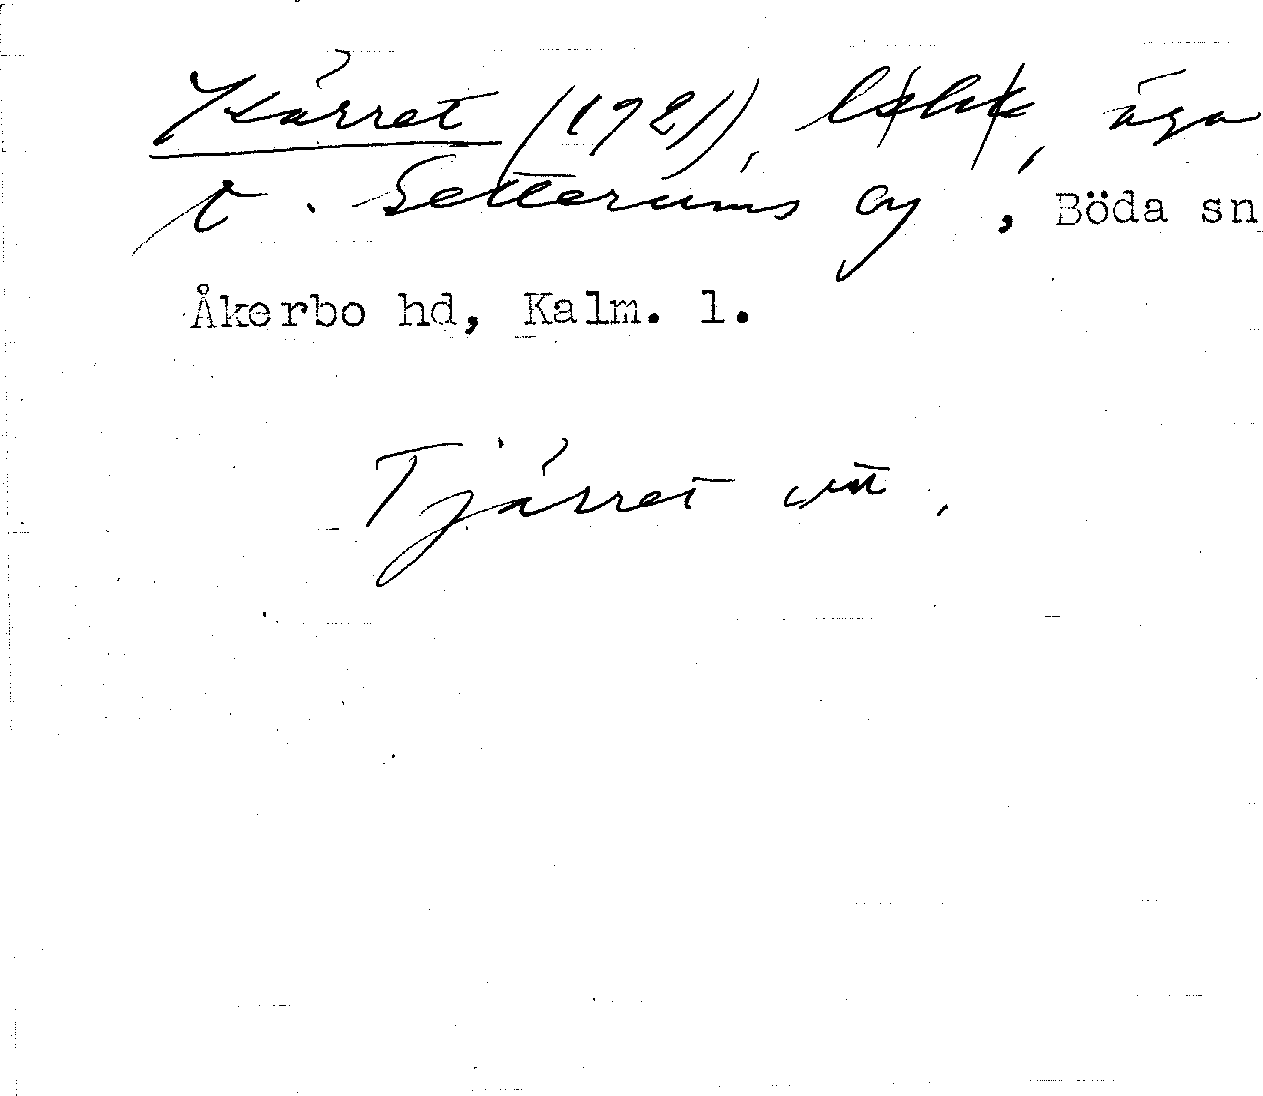 Kärret (1921), äga
t. Setterums by, Böda sn
Åkerbo hd, Kalm. l.
Tjärret utt.